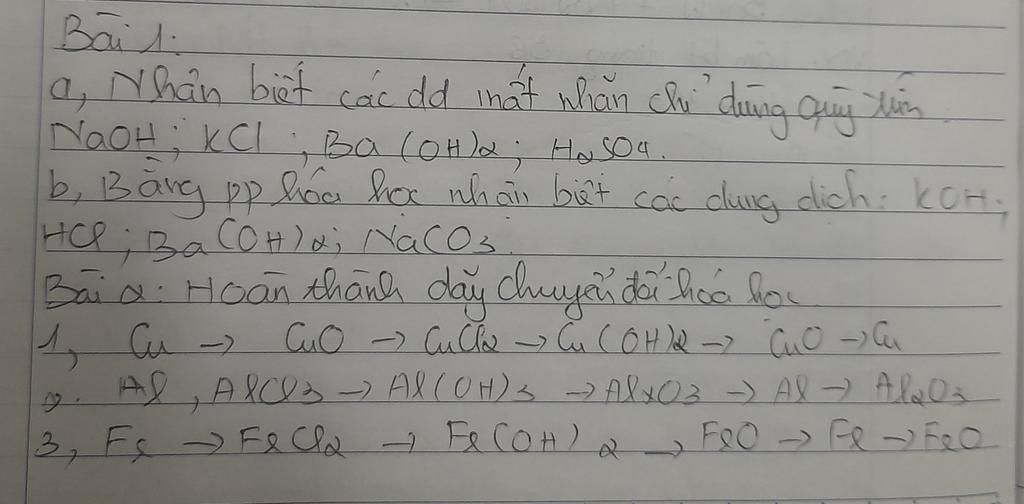 Bài 1:
a, Nhận biết các dd mất nhãn chỉ dùng quỳ tím
NaOH; KCl; Ba(OH)2; H2SO4.
b, Bằng pp hóa học nhận biết các dung dịch: KOH;
HCl; Ba(OH)2; NaCO3.
Bài 2: Hoàn thành dãy chuyển đổi hoá học
1, Cu → CuO → CuCl2 → Cu(OH)2 → CuO → Cu
2. Al, AlCl3 → Al(OH)3 → Al2O3 → Al → Al2O3
3, Fe → FeCl2 → Fe(OH)2 → FeO → Fe → FeO